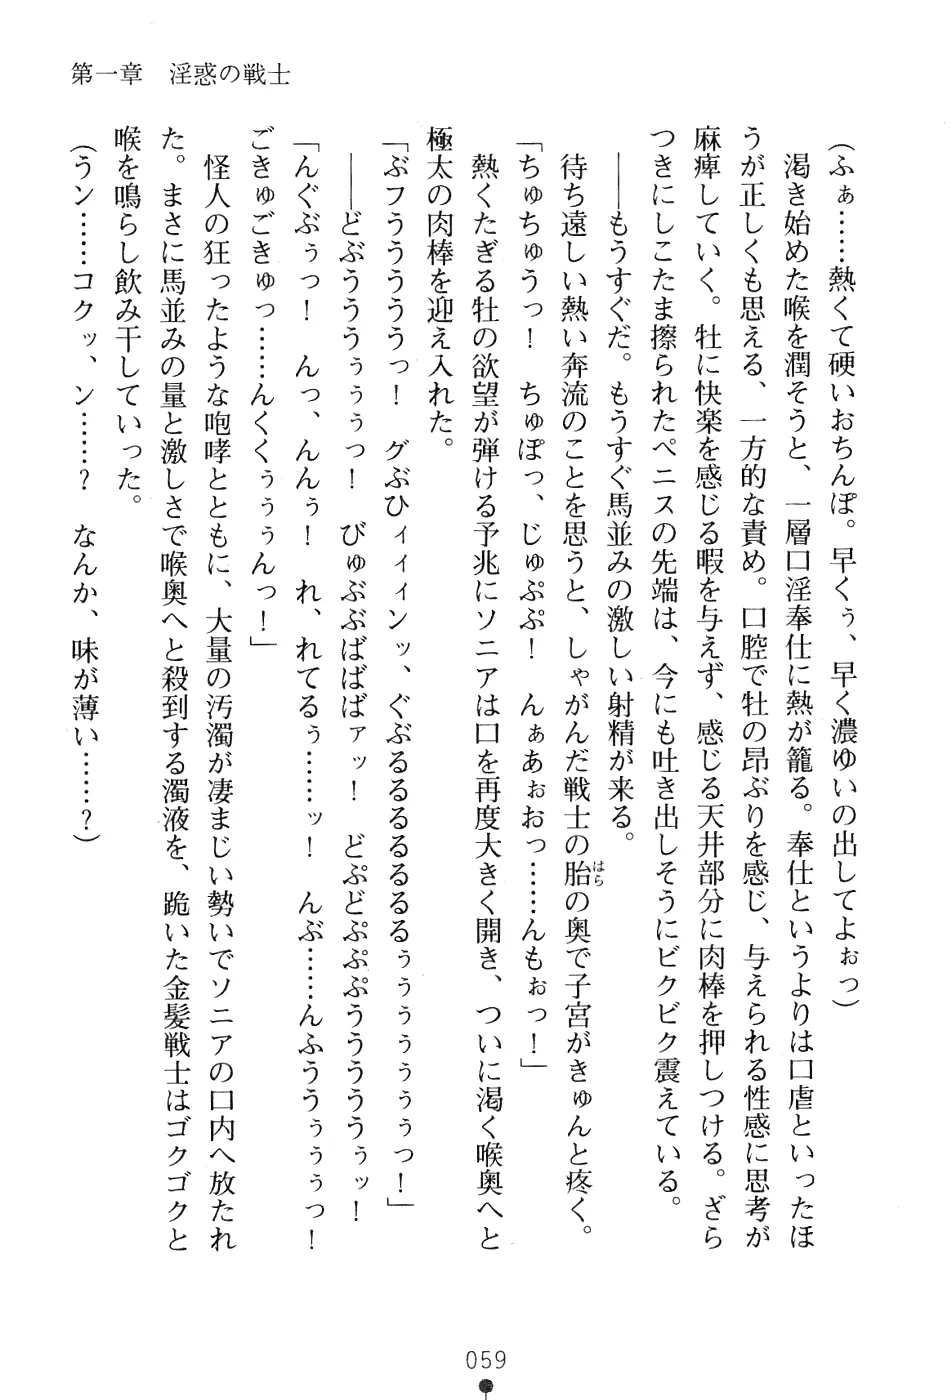 第一章　淫惑の戦士
（ふぁ……熱くて硬いおちんぽ。早くぅ、早く濃ゆいの出してよぉっ）
　渇き始めた喉を潤そうと、一層口淫奉仕に熱が籠る。奉仕というよりは口虐といったほ
うが正しくも思える、一方的な責め。口腔で牡の昂ぶりを感じ、与えられる性感に思考が
麻痺していく。牡に快楽を感じる暇を与えず、感じる天井部分に肉棒を押しつける。ざら
つきにしこたま擦られたペニスの先端は、今にも吐き出しそうにビクビク震えている。
　――もうすぐだ。もうすぐ馬並みの激しい射精が来る。
　待ち遠しい熱い奔流のことを思うと、しゃがんだ戦士の胎はらの奥で子宮がきゅんと疼く。
「ちゅちゅうっ！　ちゅぽっ、じゅぷぷ！　んぁあぉおっ……んもぉっ！」
　熱くたぎる牡の欲望が弾ける予兆にソニアは口を再度大きく開き、ついに渇く喉奥へと
極太の肉棒を迎え入れた。
「ぶフううううっ！　グぶひィィィンッ、ぐぶるるるるるるぅぅぅぅぅぅっ！」
　――どぶうううぅぅぅっ！　びゅぶぶばばばァッ！　どぷどぷぷぷううううぅッ！
「んぐぶぅっ！　んっ、んんぅ！　れ、れてるぅ……ッ！　んぶ……んふううぅぅぅっ！
ごきゅごきゅっ……んくくぅぅぅんっ！」
　怪人の狂ったような咆哮とともに、大量の汚濁が凄まじい勢いでソニアの口内へ放たれ
た。まさに馬並みの量と激しさで喉奥へと殺到する濁液を、跪いた金髪戦士はゴクゴクと
喉を鳴らし飲み干していった。
（うン……コクッ、ン……？　なんか、味が薄い……？）
059